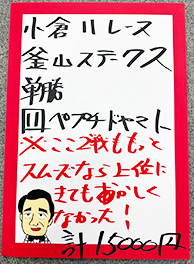 小倉11レース
釜山ステークス
単勝
⑪ペプチドヤマト
※ここ2戦ももっと
スムーズなら上位に
きてもおかしく
なかった!
計15000円